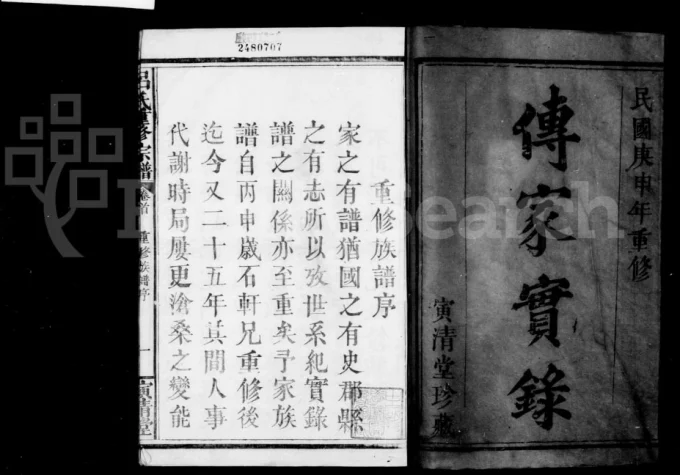 民國庚申年重修
傳家實錄
寅清堂珍藏
2480707
重修族譜序
家之有譜猶國之有史郡縣
之有志所以攷世系紀實錄
譜之關係亦至重矣予家族
譜自丙申歲石軒兄重修後
迄今又二十五年其間人事
代謝時局屢更滄桑之變能
呂氏重修宗譜
卷首 重修族譜序
一
寅清堂